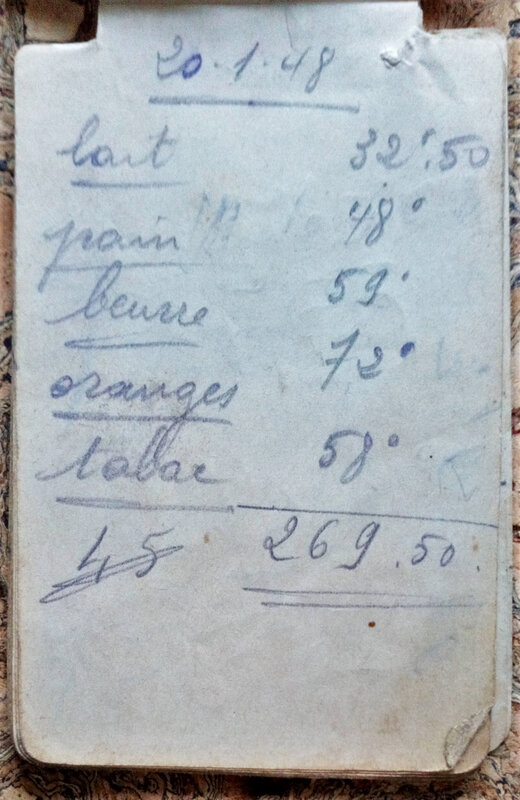 20.1.48
lait 32°.50
pain 48°
beurre 59°
oranges 72°
tabac 58°
45 269.50.